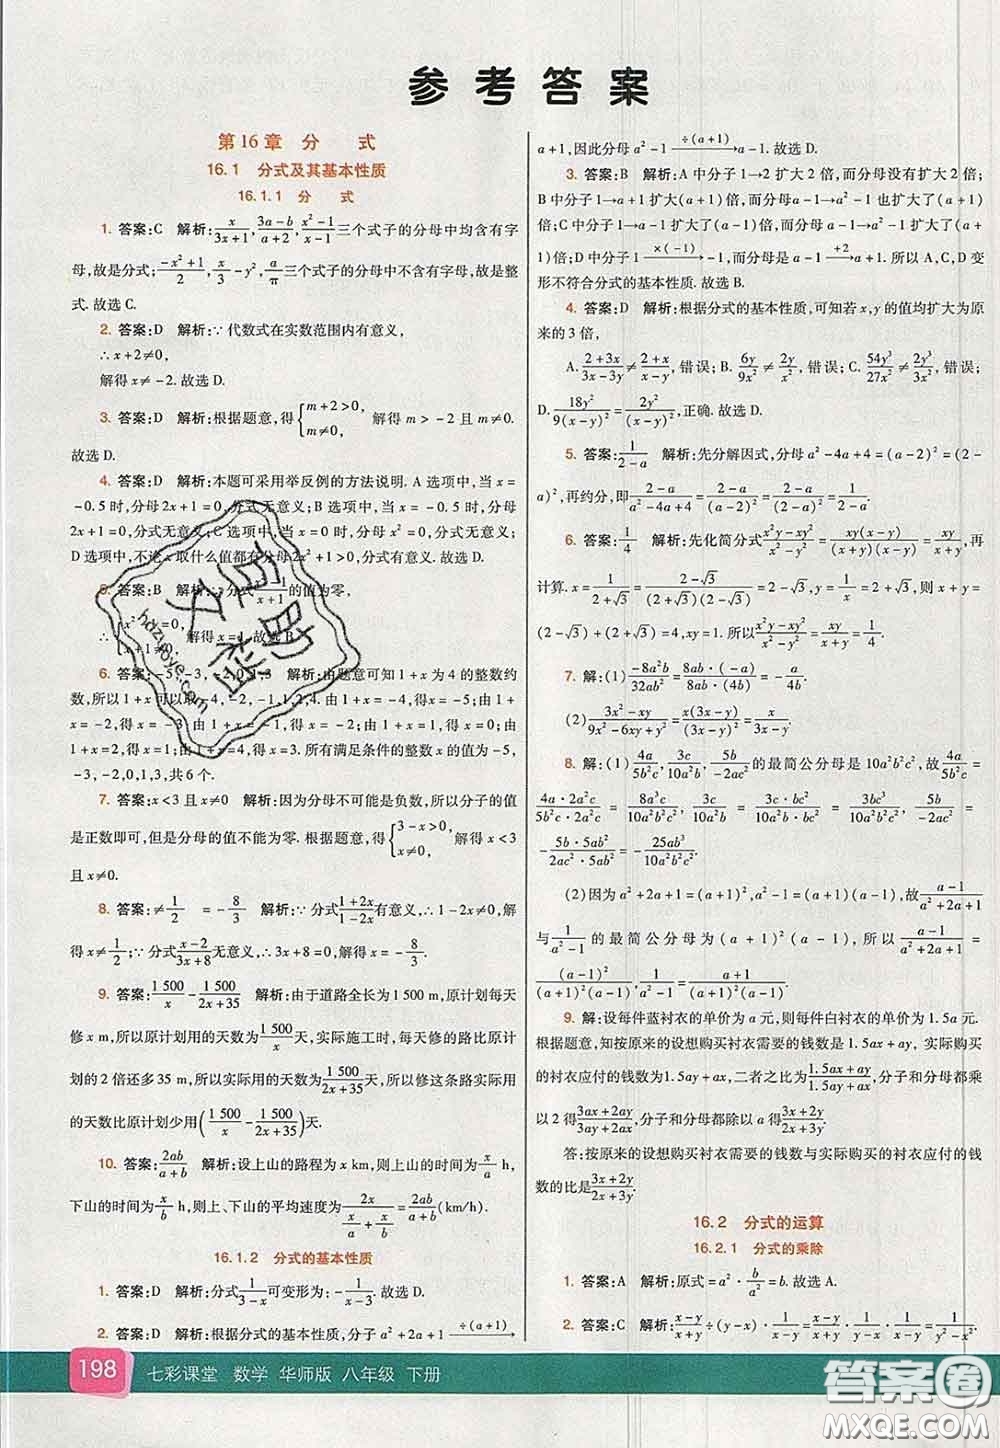 参考答案
第16章 分 式
16.1 分式及其基本性质
16.1.1 分 式
1. 答案:C 解析:x/(3x+1),(3a-b)/(a+2),(x²-1)/(x-1)三个式子的分母中均含有字
母,故是分式;(-x²+1)/2,x/3-y²,a/π三个式子的分母中不含有字母,故是整
式.故选 C.
2. 答案:D 解析:∵代数式在实数范围内有意义,
∴x+2≠0,
解得 x≠-2.故选 D.
3. 答案:D 解析:根据题意,得{m+2>0, m-1≠0, 解得 m>-2 且 m≠1.
故选 D.
4. 答案:D 解析:本题可采用举反例的方法说明. A 选项中,当 x=
-0.5 时,分母 2x+1=0,分式无意义;B 选项中,当 x=-0.5 时,分母
2x+1=0,分式无意义;C 选项中,当 x=0 时,分母 x²=0,分式无意义;
D 选项中,不论 x 取什么值都有分母 2x²+1>0,分式有意义.故选 D.
答案:B 解析:∵分式 的值为零,
解得 x=1.故选 B.
6. 答案:-5,-3,-2,0,1,3 解析:由题意可知 1+x 为 4 的整数约
数,所以 1+x 可以取-4,-2,-1,1,2,4.由 1+x=-4,得 x=-5;由 1+x
=-2,得 x=-3;由 1+x=-1,得 x=-2;由 1+x=1,得 x=0;由 1+x=
2,得 x=1;由 1+x=4,得 x=3.所有满足条件的整数 x 的值为-5,
-3,-2,0,1,3,共 6 个.
7. 答案:x<3 且 x≠0 解析:因为分母不可能是负数,所以分子的值
是正数即可,但是分母的值不能为零. 根据题意,得{3-x>0, x≠0, 解得 x<3
且 x≠0.
8. 答案:≠1/2 =-8/3 解析:∵分式(1+2x)/(1-2x)有意义,∴1-2x≠0,解
得 x≠1/2;∵分式(x-2)/(3x+8)无意义,∴3x+8=0,解得 x=-8/3.
9. 答案:1 500/x-1 500/(2x+35) 解析:由于道路全长为 1 500 m,原计划每天
修 x m,所以原计划用的天数为1 500/x,实际施工时,每天修的路比原计划
的 2 倍还多 35 m,所以实际用的天数为1 500/(2x+35),所以修这条路实际用
的天数比原计划少用(1 500/x-1 500/(2x+35))天.
10. 答案:2ab/(a+b) 解析:设上山的路程为 x km,则上山的时间为x/a h,
下山的时间为x/b h,则上、下山的平均速度为2x/(x/a+x/b)=2ab/(a+b)(km/h).
16.1.2 分式的基本性质
1. 答案:D 解析:分式1/(3-x)可变形为:-1/(x-3).故选 D.
2. 答案:D 解析:根据分式的基本性质,分子 a²+2a+1 ÷(a+1)→
a+1,因此分母 a²-1 ÷(a+1)→ a-1.故选 D.
3. 答案:B 解析:A 中分子 1→2 扩大 2 倍,而分母没有扩大 2 倍;B
中分子 1→a+1 扩大了(a+1)倍,而分母 a-1→a²-1 也扩大了(a+
1)倍;D 中分子 1 ×(-1)→ -1,而分母 a-1 +2→ a+1. 所以 A,C,D 变
形不符合分式的基本性质.故选 B.
4. 答案:D 解析:根据分式的基本性质,可知若 x,y 的值均扩大为原
来的 3 倍,
A.(2+3x)/(3x-3y)≠(2+x)/(x-y),错误;B.6y/9x²≠2y/x²,错误;C.54y³/27x²≠2y³/3x²,错误;
D.18y²/9(x-y)²=2y²/(x-y)²,正确. 故选 D.
5. 答案:1/(2-a) 解析:先分解因式,a²-4a+4=(a-2)²=(2-
a)²,再约分,即(2-a)/(a²-4a+4)=(2-a)/(a-2)²=(2-a)/(2-a)²=1/(2-a).
6. 答案:1/4 解析:先化简分式(x²y-xy²)/(x²-y²)=xy(x-y)/(x+y)(x-y)=xy/(x+y),再
计算. x=1/(2+√3)=(2-√3)/(2+√3)(2-√3)=2-√3,y=1/x=2+√3,则 x+y=
(2-√3)+(2+√3)=4,xy=1.所以(x²y-xy²)/(x²-y²)=xy/(x+y)=1/4.
7. 解:(1)-8a²b/32ab²=8ab·(-a)/8ab·4b=-a/4b.
(2)(3x²-xy)/(9x²-6xy+y²)=x(3x-y)/(3x-y)²=x/(3x-y).
8. 解:(1)4a/5b²c,3c/10a²b,5b/-2ac²的最简公分母是 10a²b²c²,故4a/5b²c=
4a·2a²c/5b²c·2a²c=8a³c/10a²b²c²,3c/10a²b=3c·bc²/10a²b·bc²=3bc³/10a²b²c²,5b/-2ac²=
-5b·5ab²/2ac²·5ab²=-25ab³/10a²b²c².
(2)因为 a²+2a+1=(a+1)²,a²-1=(a+1)(a-1),故(a-1)/(a²+2a+1)
与1/(a²-1)的最简公分母为(a+1)²(a-1),所以(a-1)/(a²+2a+1)=
(a-1)²/(a+1)²(a-1),1/(a²-1)=(a+1)/(a+1)²(a-1).
9. 解:设每件蓝衬衣的单价为 a 元,则每件白衬衣的单价为 1.5a 元.
根据题意,知按原来的设想购买衬衣需要的钱数是 1.5ax+ay, 实际购买
的衬衣应付的钱数为 1.5ay+ax,二者之比为(1.5ax+ay)/(1.5ay+ax),分子和分母都乘
以 2 得(3ax+2ay)/(3ay+2ax),分子和分母都除以 a 得(3x+2y)/(2x+3y).
答:按原来的设想购买衬衣需要的钱数与实际购买的衬衣应付的钱
数的比是(3x+2y)/(2x+3y).
16.2 分式的运算
16.2.1 分式的乘除
1. 答案:A 解析:原式=a²·b/a²=b.故选 A.
2. 答案:C 解析:(x-y)/(x+y)÷(x+y)·1/(x-y)=(x-y)/(x+y)·1/(x+y)·1/(x-y)=
198 七彩课堂 数学 华师版 八年级 下册
答案圈
MXQE.COM
hdzuoye.com